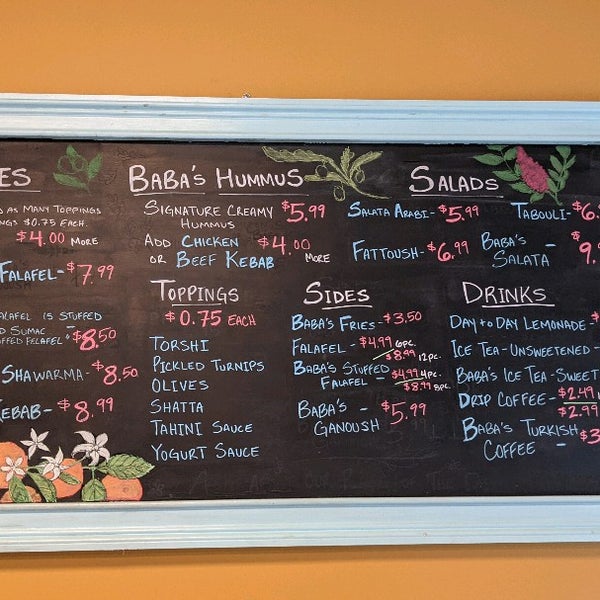 ES
D AS MANY TOPPINGS
NGS $0.75 EACH.
$4.00 MORE
FALAFEL- $7.99
ALAFEL IS STUFFED
D SUMAC -
FFED FELAFEL" $8.50
SHAWARMA- $8.50
KEBAB- $8.99
BABA'S HUMMUS
SIGNATURE CREAMY HUMMUS $5.99
ADD CHICKEN $4.00
OR BEEF KEBAB MORE
TOPPINGS
$0.75 EACH
TORSHI
PICKLED TURNIPS
OLIVES
SHATTA
TAHINI SAUCE
YOGURT SAUCE
SALADS
SALATA ARABI- $5.99
FATTOUSH- $6.99
TABOULI- $6.
BABA'S - $9.
SALATA
SIDES
BABA'S FRIES- $3.50
FALAFEL - $4.99 6PC.
$8.99 12PC.
BABA'S STUFFED
FALAFEL - $4.99 4PC.
$8.99 8PC.
BABA'S - $5.99
GANOUSH
DRINKS
DAY TO DAY LEMONADE- $
ICE TEA-UNSWEETENED-
BABA'S ICE TEA-SWEET
DRIP COFFEE- $2.49
$2.99
BABA'S TURKISH
COFFEE - $3